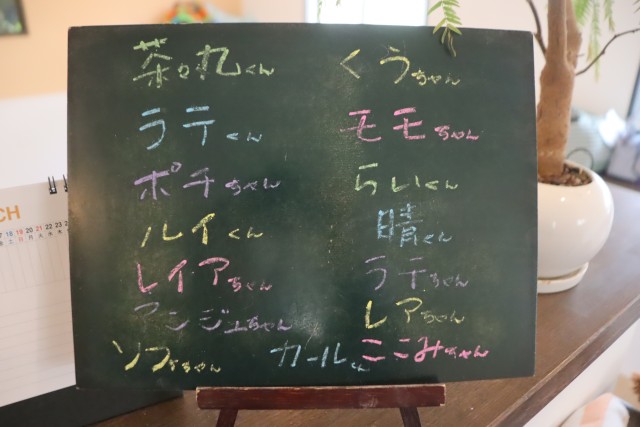 茶々丸くん くぅちゃん
ラテくん モモちゃん
ポチちゃん らいくん
ルイくん 晴くん
レイアちゃん ラテちゃん
アンジュちゃん レアちゃん
ソフィちゃん カールくん ここみちゃん
CH
18 19 20 21 22 23